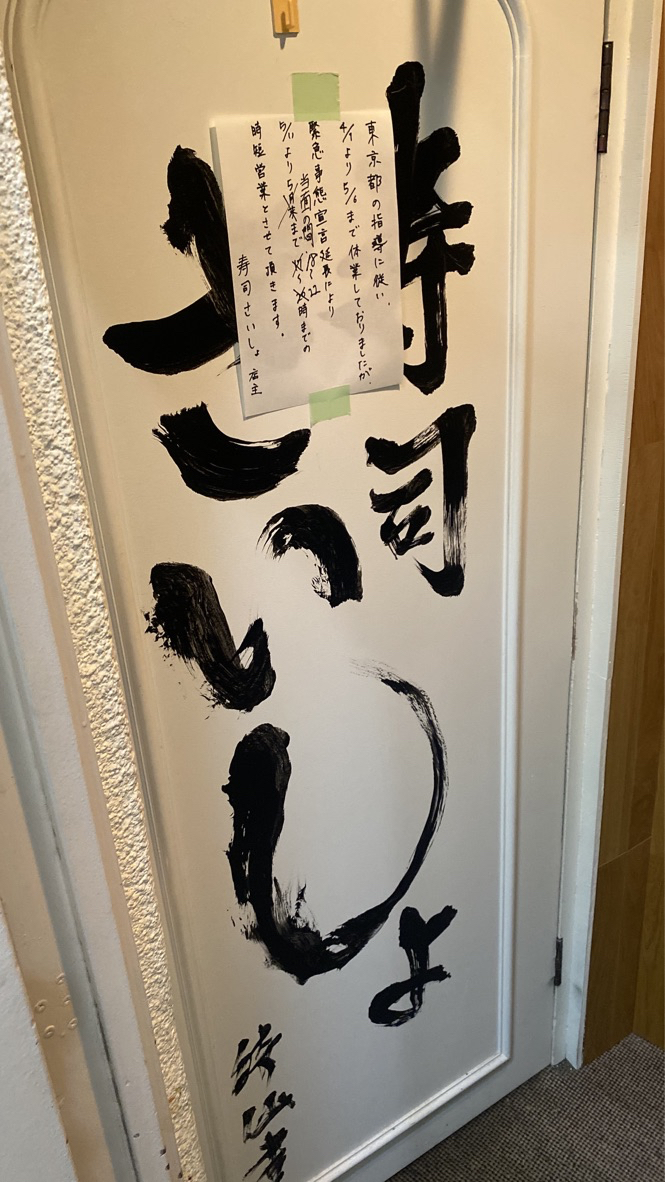 寿司
さいしょ
東京都の指導に従い、
4/1より5/6まで休業しておりましたが、
緊急事態宣言延長により
当面の間、18〜22
5/11より5月末まで 時までの
時短営業とさせて頂きます。
寿司さいしょ 店主